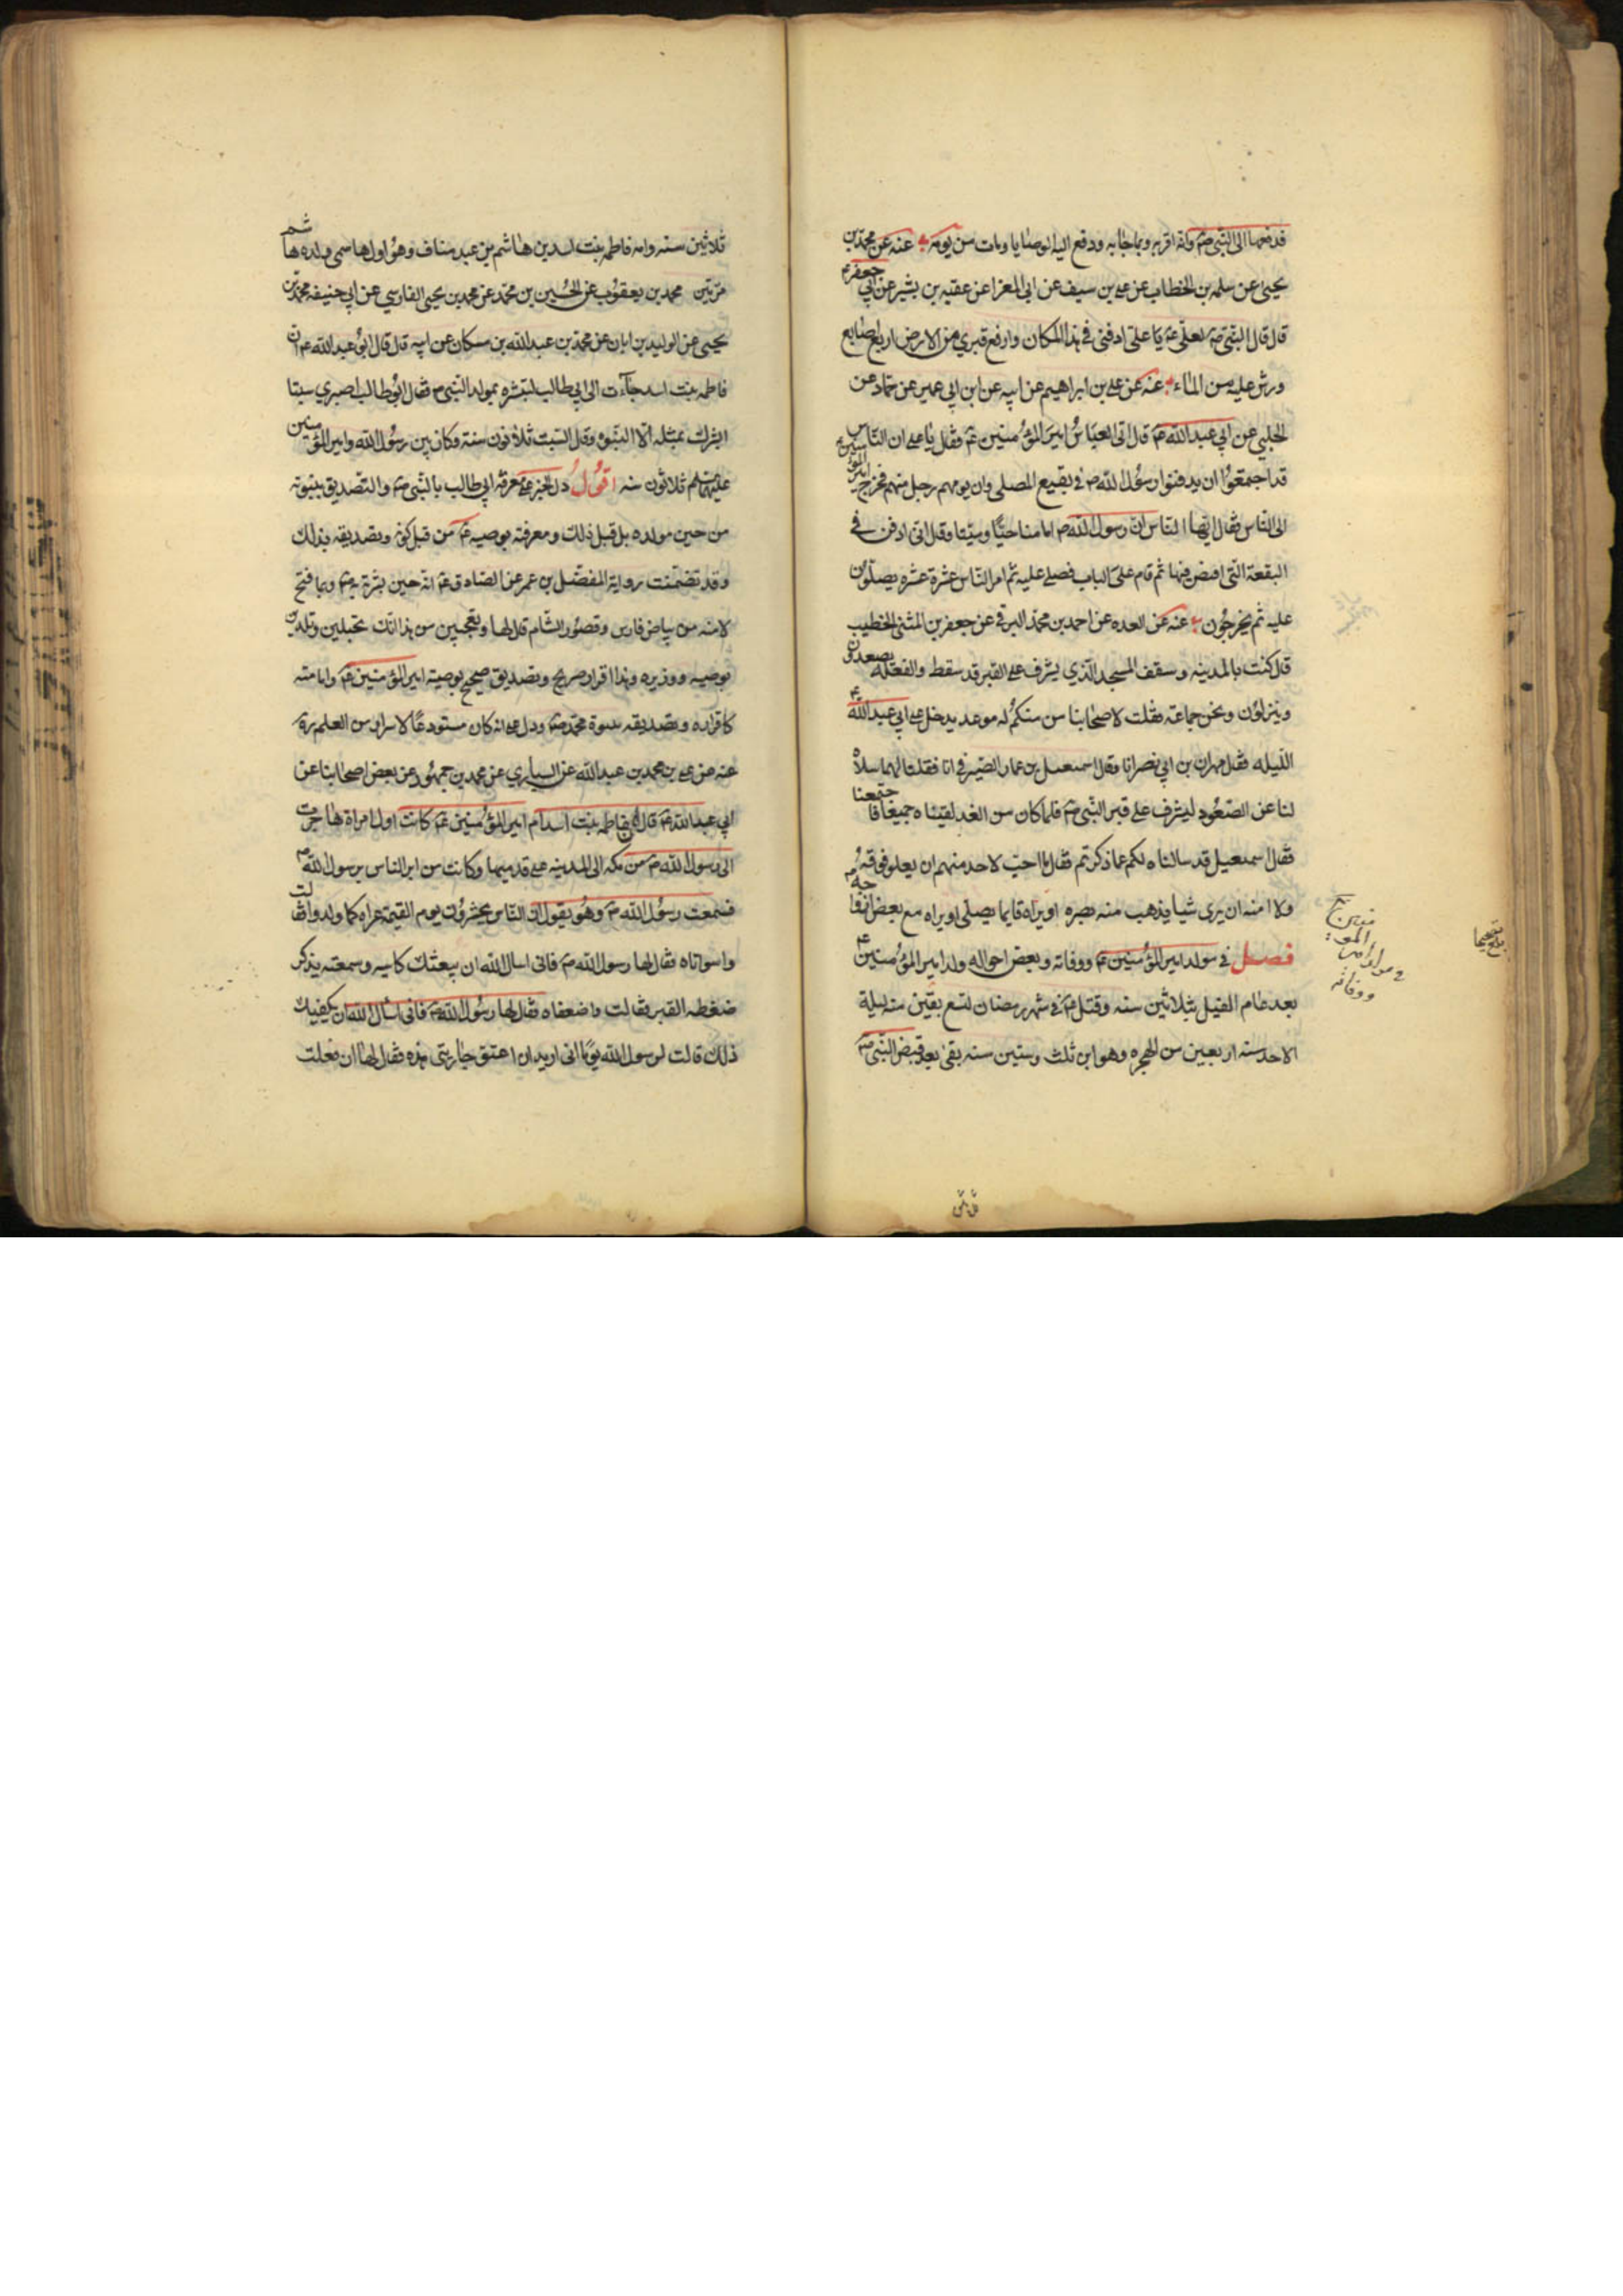 فدفعها الى النبي ص وانه اقر به وبما جا به ودفع اليه الوصايا ومات من يومه عنه عن محمد بن
يحيى عن سلمه بن الخطاب عن على بن سيف عن ابى المعزا عن عقبه بن بشير عن ابي جعفر ع
قال قال النبي ص لعلي ع يا على ادفنى في هذا المكان وارفع قبري من الارض اربع اصابع
ورش عليه من الماء عنه عن على بن ابراهيم عن ابيه عن ابن ابي عمير عن حماد عن
الحلبي عن ابي عبد الله ع قال اتى العباس امير المؤمنين ع فقال يا على ان الناس
قد اجتمعوا ان يدفنوا رسول الله ص في بقيع المصلى وان يومهم رجل منهم فخرج امير المؤمنين ع
الى الناس فقال ايها الناس ان رسول الله ص امامنا حيا وميتا وقال انى ادفن في
البقعة التى اقبض فيها ثم قام على الباب فصلى عليه ثم امر الناس عشرة عشره يصلون
عليه ثم يخرجون عنه عن العده عن احمد بن محمد البرقي عن جعفر بن المثنى الخطيب
قال كنت بالمدينه وسقف المسجد الذي يشرف على القبر قد سقط والفعله يصعدون
وينزلون ونحن جماعه فقلت لاصحابنا من منكم له موعد يدخل على ابي عبد الله ع
الليله فقال مهران بن ابي نصر انا وقال اسمعيل بن عمار الصيرفي انا فقلنا لهما سلاه
لنا عن الصعود ليشرف على قبر النبي ص فلما كان من الغد لقيناه جميعا فاجتمعنا
فقال اسمعيل قد سالناه لكم عما ذكرتم فقال ما احب لاحد منهم ان يعلو فوقه
ولا امنه ان يرى شيا يذهب منه بصره او يراه قايما يصلى او يراه مع بعض ازواجه
فصل في مولد امير المؤمنين ع ووفاته وبعض احواله ولد امير المؤمنين ع
بعد عام الفيل بثلاثين سنه وقتل ع في شهر رمضان لتسع بقين منه ليلة
الاحد سنه اربعين من الهجره وهو ابن ثلث وستين سنه بقى بعد قبض النبي ص
في مولد امير المؤمنين ووفاته
بلغ
ثلاثين سنه وامه فاطمه بنت اسد بن هاشم بن عبد مناف وهو اول هاشمى ولده هاشم
مرتين محمد بن يعقوب عن الحسين بن محمد عن محمد بن يحيى الفارسي عن ابي حنيفه محمد بن
يحيى عن الوليد بن ابان عن محمد بن عبد الله بن مسكان عن ابيه قال قال ابو عبد الله ع ان
فاطمه بنت اسد جاءت الى ابي طالب لتبشره بمولد النبي ص فقال ابو طالب اصبري سبتا
ابشرك بمثله الا النبوة وقال السبت ثلاثون سنة وكان بين رسول الله وامير المؤمنين
عليهما السلم ثلاثون سنه اقول دل الخبر على معرفة ابي طالب بالنبي ص والتصديق بنبوته
من حين مولده بل قبل ذلك ومعرفته بوصيه ع من قبل كونه وتصديقه بذلك
وقد تضمنت رواية المفضل بن عمر عن الصادق ع انه حين بشرته به ص وبما فتح
لامنه من بياض فارس وقصور الشام قال لها وتعجبين من هذا انك تحبلين وتلدين
بوصيه ووزيره وهذا اقرار صريح وتصديق صحيح بوصية امير المؤمنين ع وامامته
كاقراره وتصديقه بنبوة محمد ص ودل على انه كان مستودعا لاسرار من العلم
عنه عن على بن محمد بن عبد الله عن السياري عن محمد بن جمهور عن بعض اصحابنا عن
ابي عبد الله ع قال ان فاطمه بنت اسد ام امير المؤمنين ع كانت اول امراة هاجرت
الى رسول الله ص من مكه الى المدينه على قدميها وكانت من ابر الناس برسول الله ص
فسمعت رسول الله ص وهو يقول ان الناس يحشرون يوم القيمة عراه كما ولدوا فقالت
واسواتاه فقال لها رسول الله ص فانى اسال الله ان يبعثك كاسيه وسمعته يذكر
ضغطه القبر فقالت واضعفاه فقال لها رسول الله ص فانى اسال الله ان يكفيك
ذلك قالت لرسول الله يوما انى اريد ان اعتق جاريتى هذه فقال لها ان فعلت